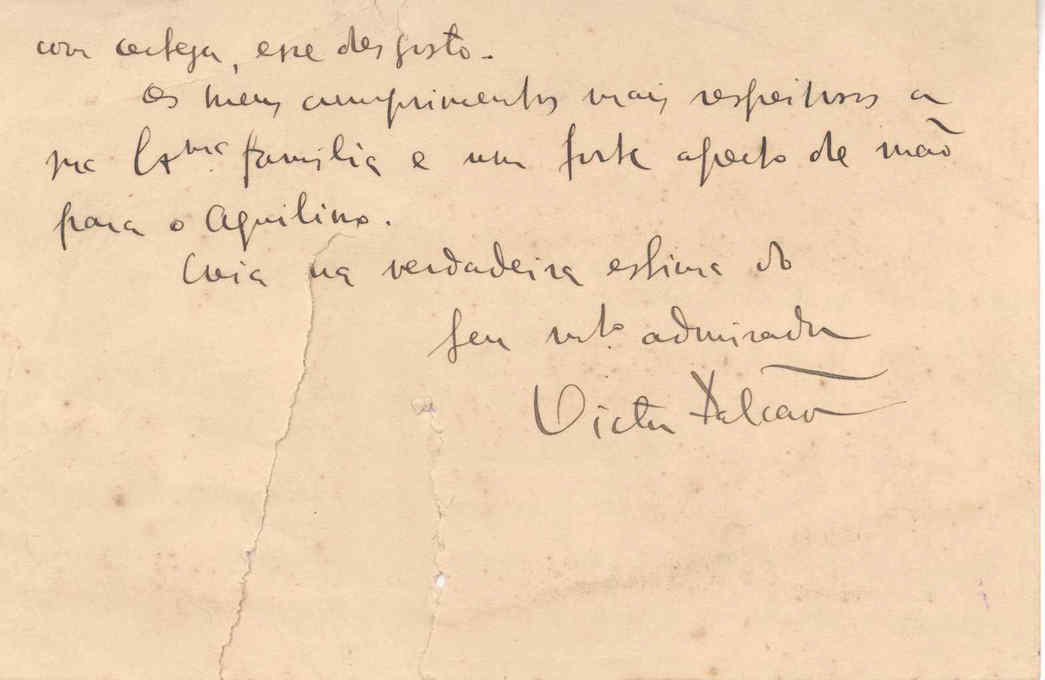 com certeza, esse desgosto.
Os meus cumprimentos mais respeitosos a
sua Exma. familia e um forte aperto de mão
para o Aquilino.
Creia na verdadeira estima do
seu mto. admirador
Victor Falcão